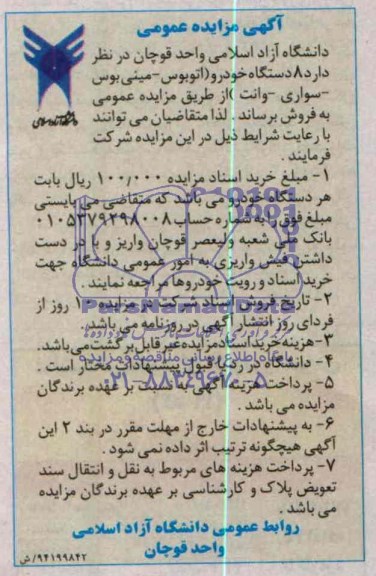 آگهی مزایده عمومی
دانشگاه آزاد اسلامی واحد قوچان در نظر
دارد ۸ دستگاه خودرو (اتوبوس - مینی بوس
- سواری - وانت) از طریق مزایده عمومی
به فروش برساند . لذا متقاضیان می توانند
با رعایت شرایط ذیل در این مزایده شرکت
فرمایند .
۱- مبلغ خرید اسناد مزایده ۱۰۰/۰۰۰ ریال بابت
هر دستگاه خودرو می باشد که متقاضی می بایستی
مبلغ فوق را به شماره حساب ۰۱۰۵۳۷۹۲۹۸۰۰۸
بانک ملی شعبه ولیعصر قوچان واریز و با در دست
داشتن فیش واریزی به امور عمومی دانشگاه جهت
خرید اسناد و رویت خودروها مراجعه نمایند .
۲- تاریخ فروش اسناد شرکت در مزایده ۱۰ روز از
فردای روز انتشار آگهی در روزنامه می باشد.
۳- هزینه خرید اسناد مزایده غیر قابل برگشت می باشد.
۴- دانشگاه در رد یا قبول پیشنهادات مختار است .
۵- پرداخت هزینه آگهی به نسبت بر عهده برندگان
مزایده می باشد .
۶- به پیشنهادات خارج از مهلت مقرر در بند ۲ این
آگهی هیچگونه ترتیب اثر داده نمی شود .
۷- پرداخت هزینه های مربوط به نقل و انتقال سند
تعویض پلاک و کارشناسی بر عهده برندگان مزایده
می باشد .
روابط عمومی دانشگاه آزاد اسلامی
واحد قوچان
۹۴۱۹۹۸۴۲/ش
ParsNamadData
پایگاه اطلاع رسانی مناقصه و مزایده
۰۲۱-۸۸۳۴۹۶۷۰-۵